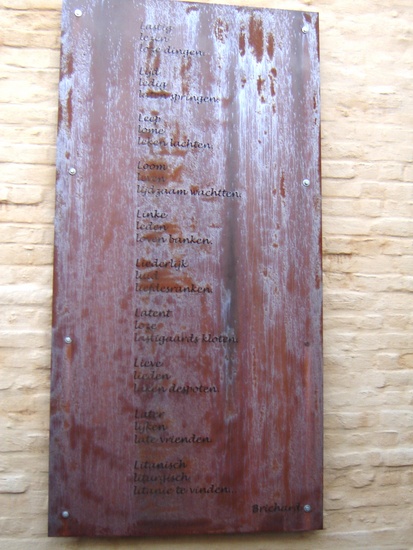 Lastig
lezen
loze dingen.
Lijd
ledig
leven springen.
Leep
lome
leven lachten.
Loom
leven
lijdzaam wachtten.
Linke
leden
leven banken.
Liederlijk
luid
liefdesranken.
Latent
loze
luttgaards klotten.
Lieve
lieden
laken despoten.
Later
lijken
late vrienden.
Litanisch
liturgisch
litanie te vinden...
Brichant